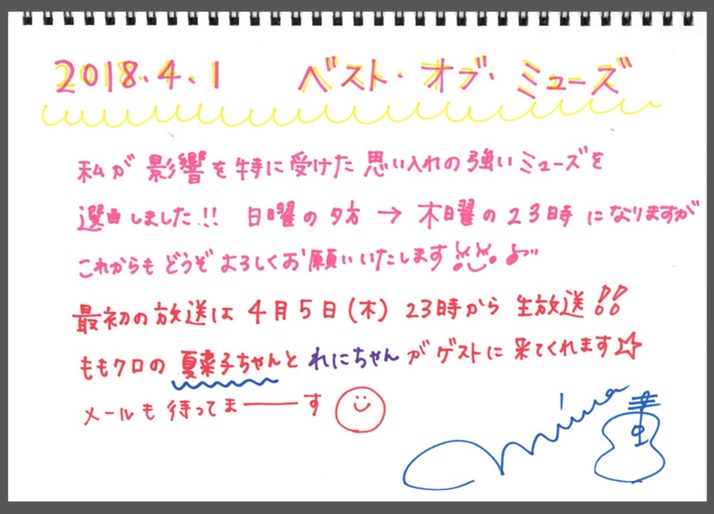 2018.4.1 ベスト・オブ・ミューズ
私が影響を特に受けた思い入れの強いミューズを
選曲しました!! 日曜の夕方→木曜の23時になりますが
これからもどうぞよろしくお願いいたします
最初の放送は4月5日(木) 23時から生放送!!
ももクロの夏菜子ちゃんとれにちゃんがゲストに来てくれます☆
メールも待ってまーーす
miwa